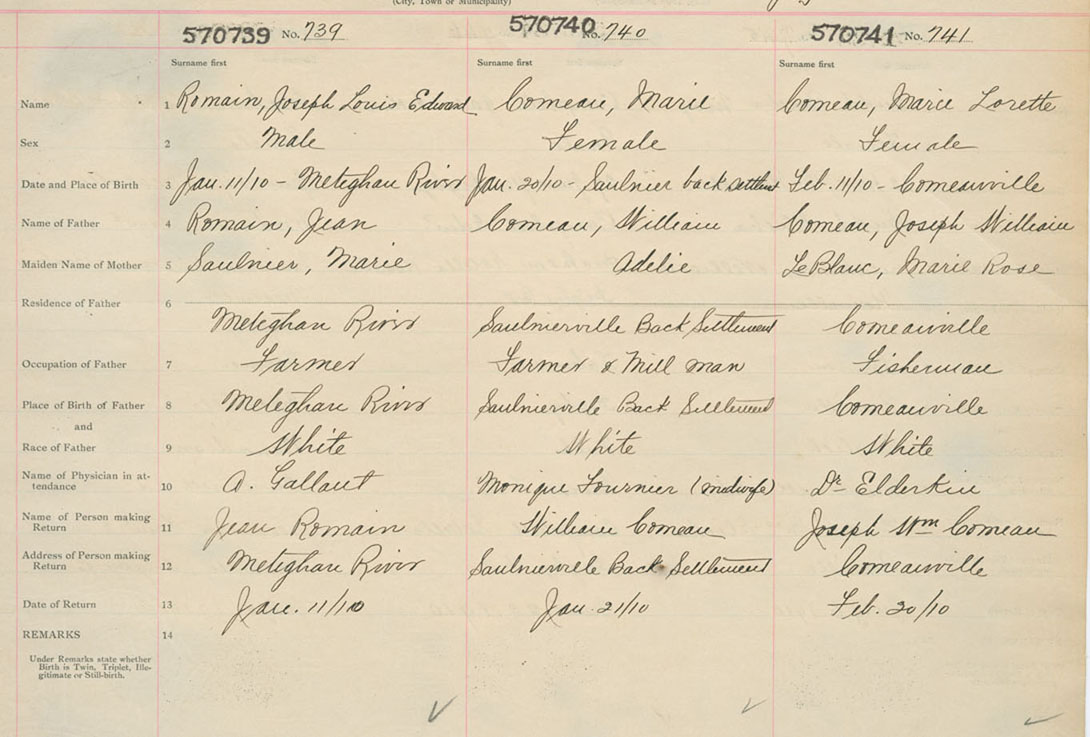 (City, Town or Municipality)
570739 No. 739 570740 No. 740 570741 No. 741
Surname first Surname first Surname first
Name 1 Romain, Joseph Louis Edward Comeau, Marie Comeau, Marie Lorette
Sex 2 Male Female Female
Date and Place of Birth 3 Jan. 11/10 - Meteghan River Jan. 20/10 - Saulnier back settlmt Feb. 11/10 - Comeauville
Name of Father 4 Romain, Jean Comeau, William Comeau, Joseph William
Maiden Name of Mother 5 Saulnier, Marie Adelie LeBlanc, Marie Rose
Residence of Father 6
Meteghan River Saulnierville Back Settlement Comeauville
Occupation of Father 7 Farmer Farmer & Mill man Fisherman
Place of Birth of Father 8 Meteghan River Saulnierville Back Settlement Comeauville
and
Race of Father 9 White White White
Name of Physician in at-
tendance 10 A. Gallant Monique Fournier (midwife) Dr Elderkin
Name of Person making
Return 11 Jean Romain William Comeau Joseph Wm Comeau
Address of Person making
Return 12 Meteghan River Saulnierville Back Settlement Comeauville
Date of Return 13 Jan. 11/10 Jan. 21/10 Feb. 20/10
REMARKS 14
Under Remarks state whether
Birth is Twin, Triplet, Ille-
gitimate or Still-birth.